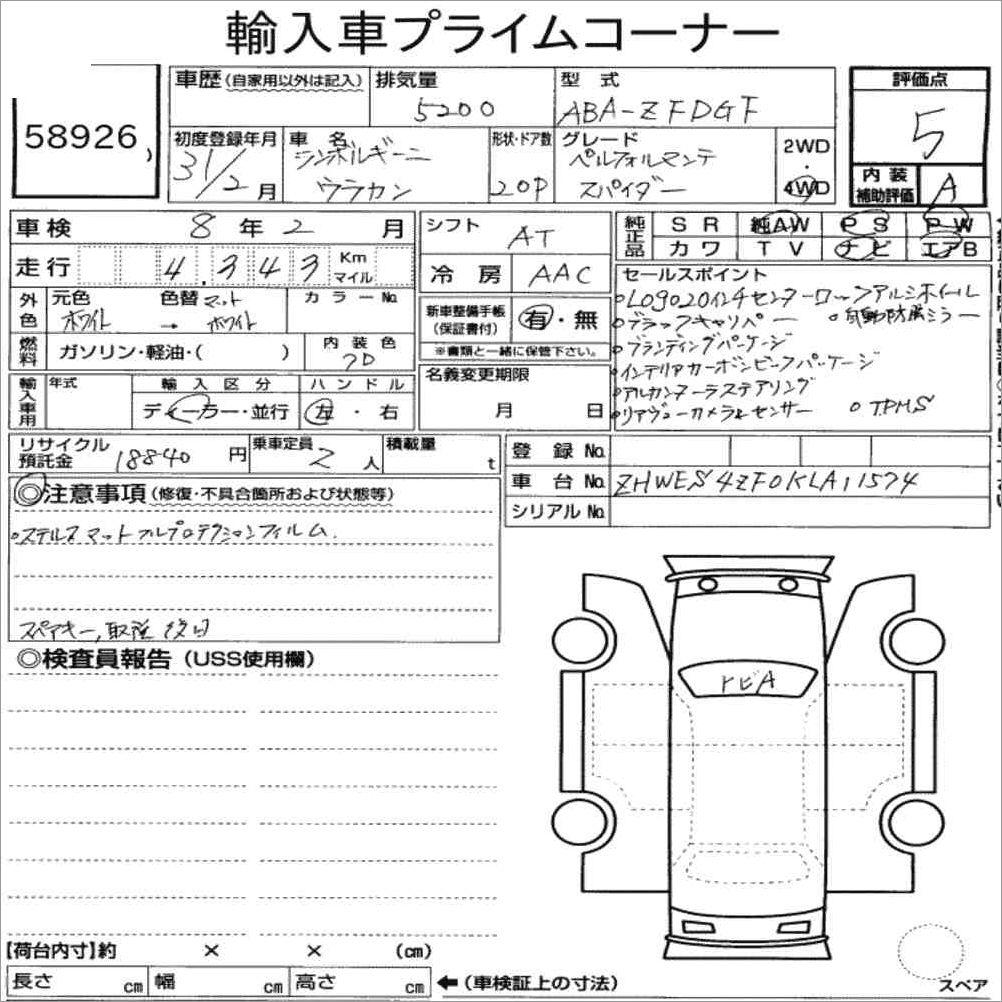 輸入車プライムコーナー
58926
車歴(自家用以外は記入) 排気量 5200 型式 ABA-ZFDGF
評価点 5
内装補助評価 A
初度登録年月 31/2月 車名 ランボルギーニ ウラカン
形状・ドア数 2OP グレード ペルフォルマンテ スパイダー
2WD・4WD
車検 8年2月
走行 4.343 Km マイル
シフト AT
冷房 AAC
純正品 SR 純AW PS PW
カワ TV ナビ エアB
外色 元色 ホワイト 色替 マット → ホワイト カラーNo.
燃料 ガソリン・軽油・( ) 内装色
新車整備手帳(保証書付) 有・無
※書類と一緒に保管下さい。
セールスポイント
○LOGO20インチセンターロックアルミホイール
○ブラックキャリパー ○自動防眩ミラー
○ブランディングパッケージ
○インテリアカーボンピックパッケージ
○アルカンターラステアリング
○リアヴューカメラ&センサー ○TPMS
輸入車用 年式 輸入区分 ディーラー・並行 ハンドル 左・右
名義変更期限 月 日
リサイクル預託金 18840円 乗車定員 2人 積載量 t
登録No.
車台No. ZHWES4ZF0KLA11574
シリアルNo.
◎注意事項(修復・不具合箇所および状態等)
○ステルスマットフルプロテクションフィルム.
スペアキー,取説 後日
◎検査員報告(USS使用欄)
トビA
【荷台内寸】約 × × (cm)
長さ cm 幅 cm 高さ cm ←(車検証上の寸法)
スペア